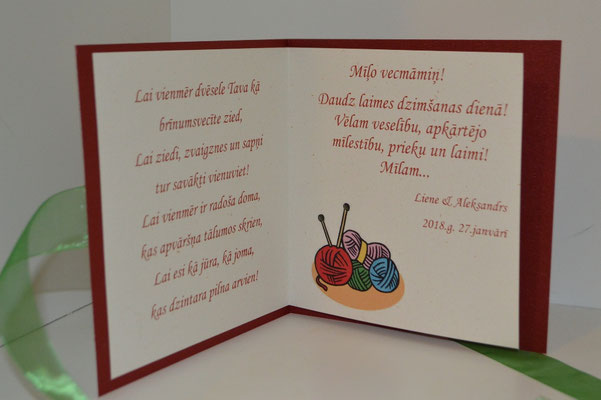 Lai vienmēr dvēsele Tava kā
brīnumsvecīte zied,
Lai ziedi, zvaigznes un sapņi
tur savākti vienuviet!
Lai vienmēr ir radoša doma,
kas apvāršņa tālumos skrien,
Lai esi kā jūra, kā joma,
kas dzintara pilna arvien!
Mīļo vecmāmiņ!
Daudz laimes dzimšanas dienā!
Vēlam veselību, apkārtējo
mīlestību, prieku un laimi!
Mīlam...
Liene & Aleksandrs
2018.g. 27.janvārī